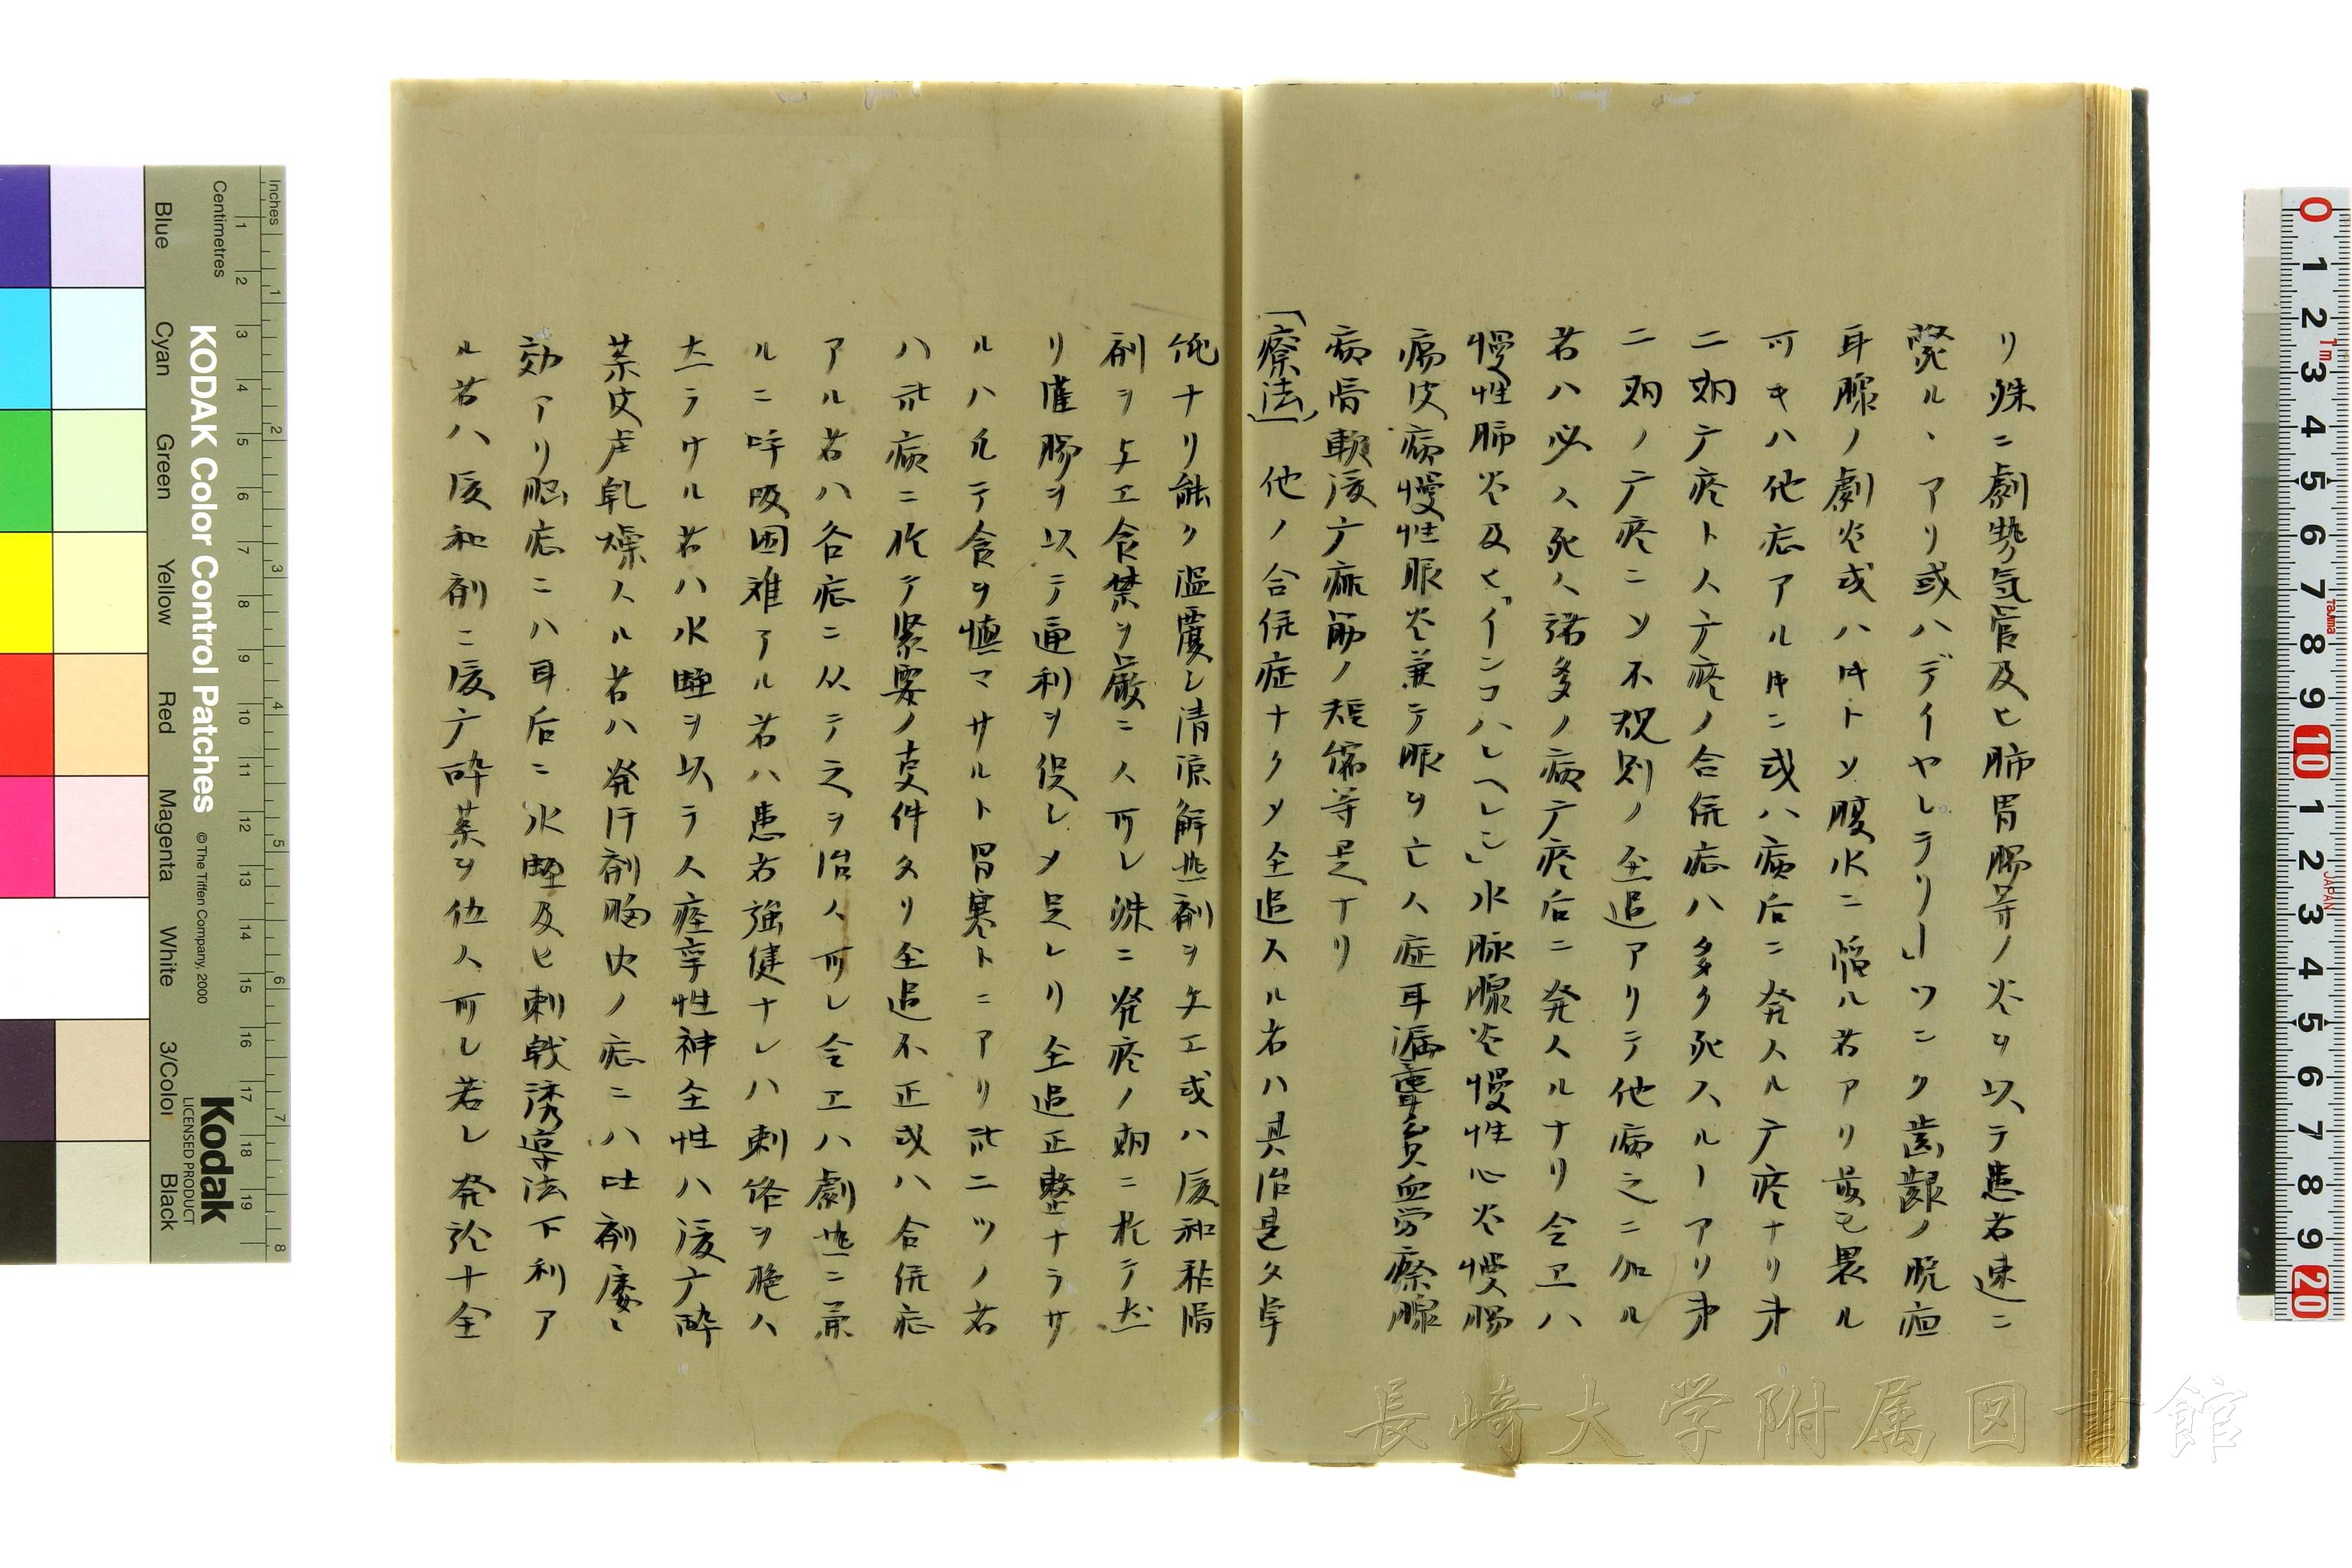 リ殊ニ劇勢気管及ヒ肺胃腸等ノ炎ヲ以テ患者速ニ
斃ル、アリ或ハデイヤレラリー」ツニク歯齦ノ脱疽
耳腺ノ劇炎或ハ時トソ腹水ニ陥ル者アリ最モ畏ル
可キハ他症アル時ニ或ハ病后ニ発スル疹ナリ第
二期疹トス疹ノ合併症ハ多ク死スルーアリ第
二期ノ疹ニソ不規則ノ全追アリテ他病之ニ加ル
者ハ必ス死ス諸多ノ病疹后ニ発スルナリ令エハ
慢性肺炎及ヒ「インコハレヘレン」水脉腺炎慢性心炎慢腸
瘍皮病慢性眼炎兼テ眼ヲ亡ス症耳漏聾貧血労瘵腺
病骨軟痲筋ノ短縮等是ナリ
「療法」他ノ合併症ナクソ全追スル者ハ其治甚タ卑
ナリ能ク温覆シ清涼解熱剤ヲ与エ或ハ緩和粘滑
剤ヲ与エ食禁ヲ厳ニス可レ殊ニ発疹ノ期ニ於テ然
リ灌腸ヲ以テ通利ヲ促レメ足レリ全追正整ナラサ
ルハ テ食ヲ慎マサルト冒寒トニアリ ニツノ者
ハ 病ニ於テ緊要ノ事件タリ全追不正或ハ合併症
アル者ハ各症ニ从テ之ヲ治ス可レ令エハ劇熱ニ兼
ルニ呼吸困難アル者ハ患者強健ナレハ刺絡ヲ施ス
然ラサル者ハ水蛭ヲ以テス痙挛性神全性ハ緩 酔
薬皮膚乾燥スル者ハ発汗剤胸内ノ症ニハ吐剤屡〻
効アリ脳症ニハ耳后ニ水蛭及ヒ刺戟誘導法下利ア
ル者ハ緩和剤ニ緩 酔薬ヲ伍ス可レ若レ発 十全